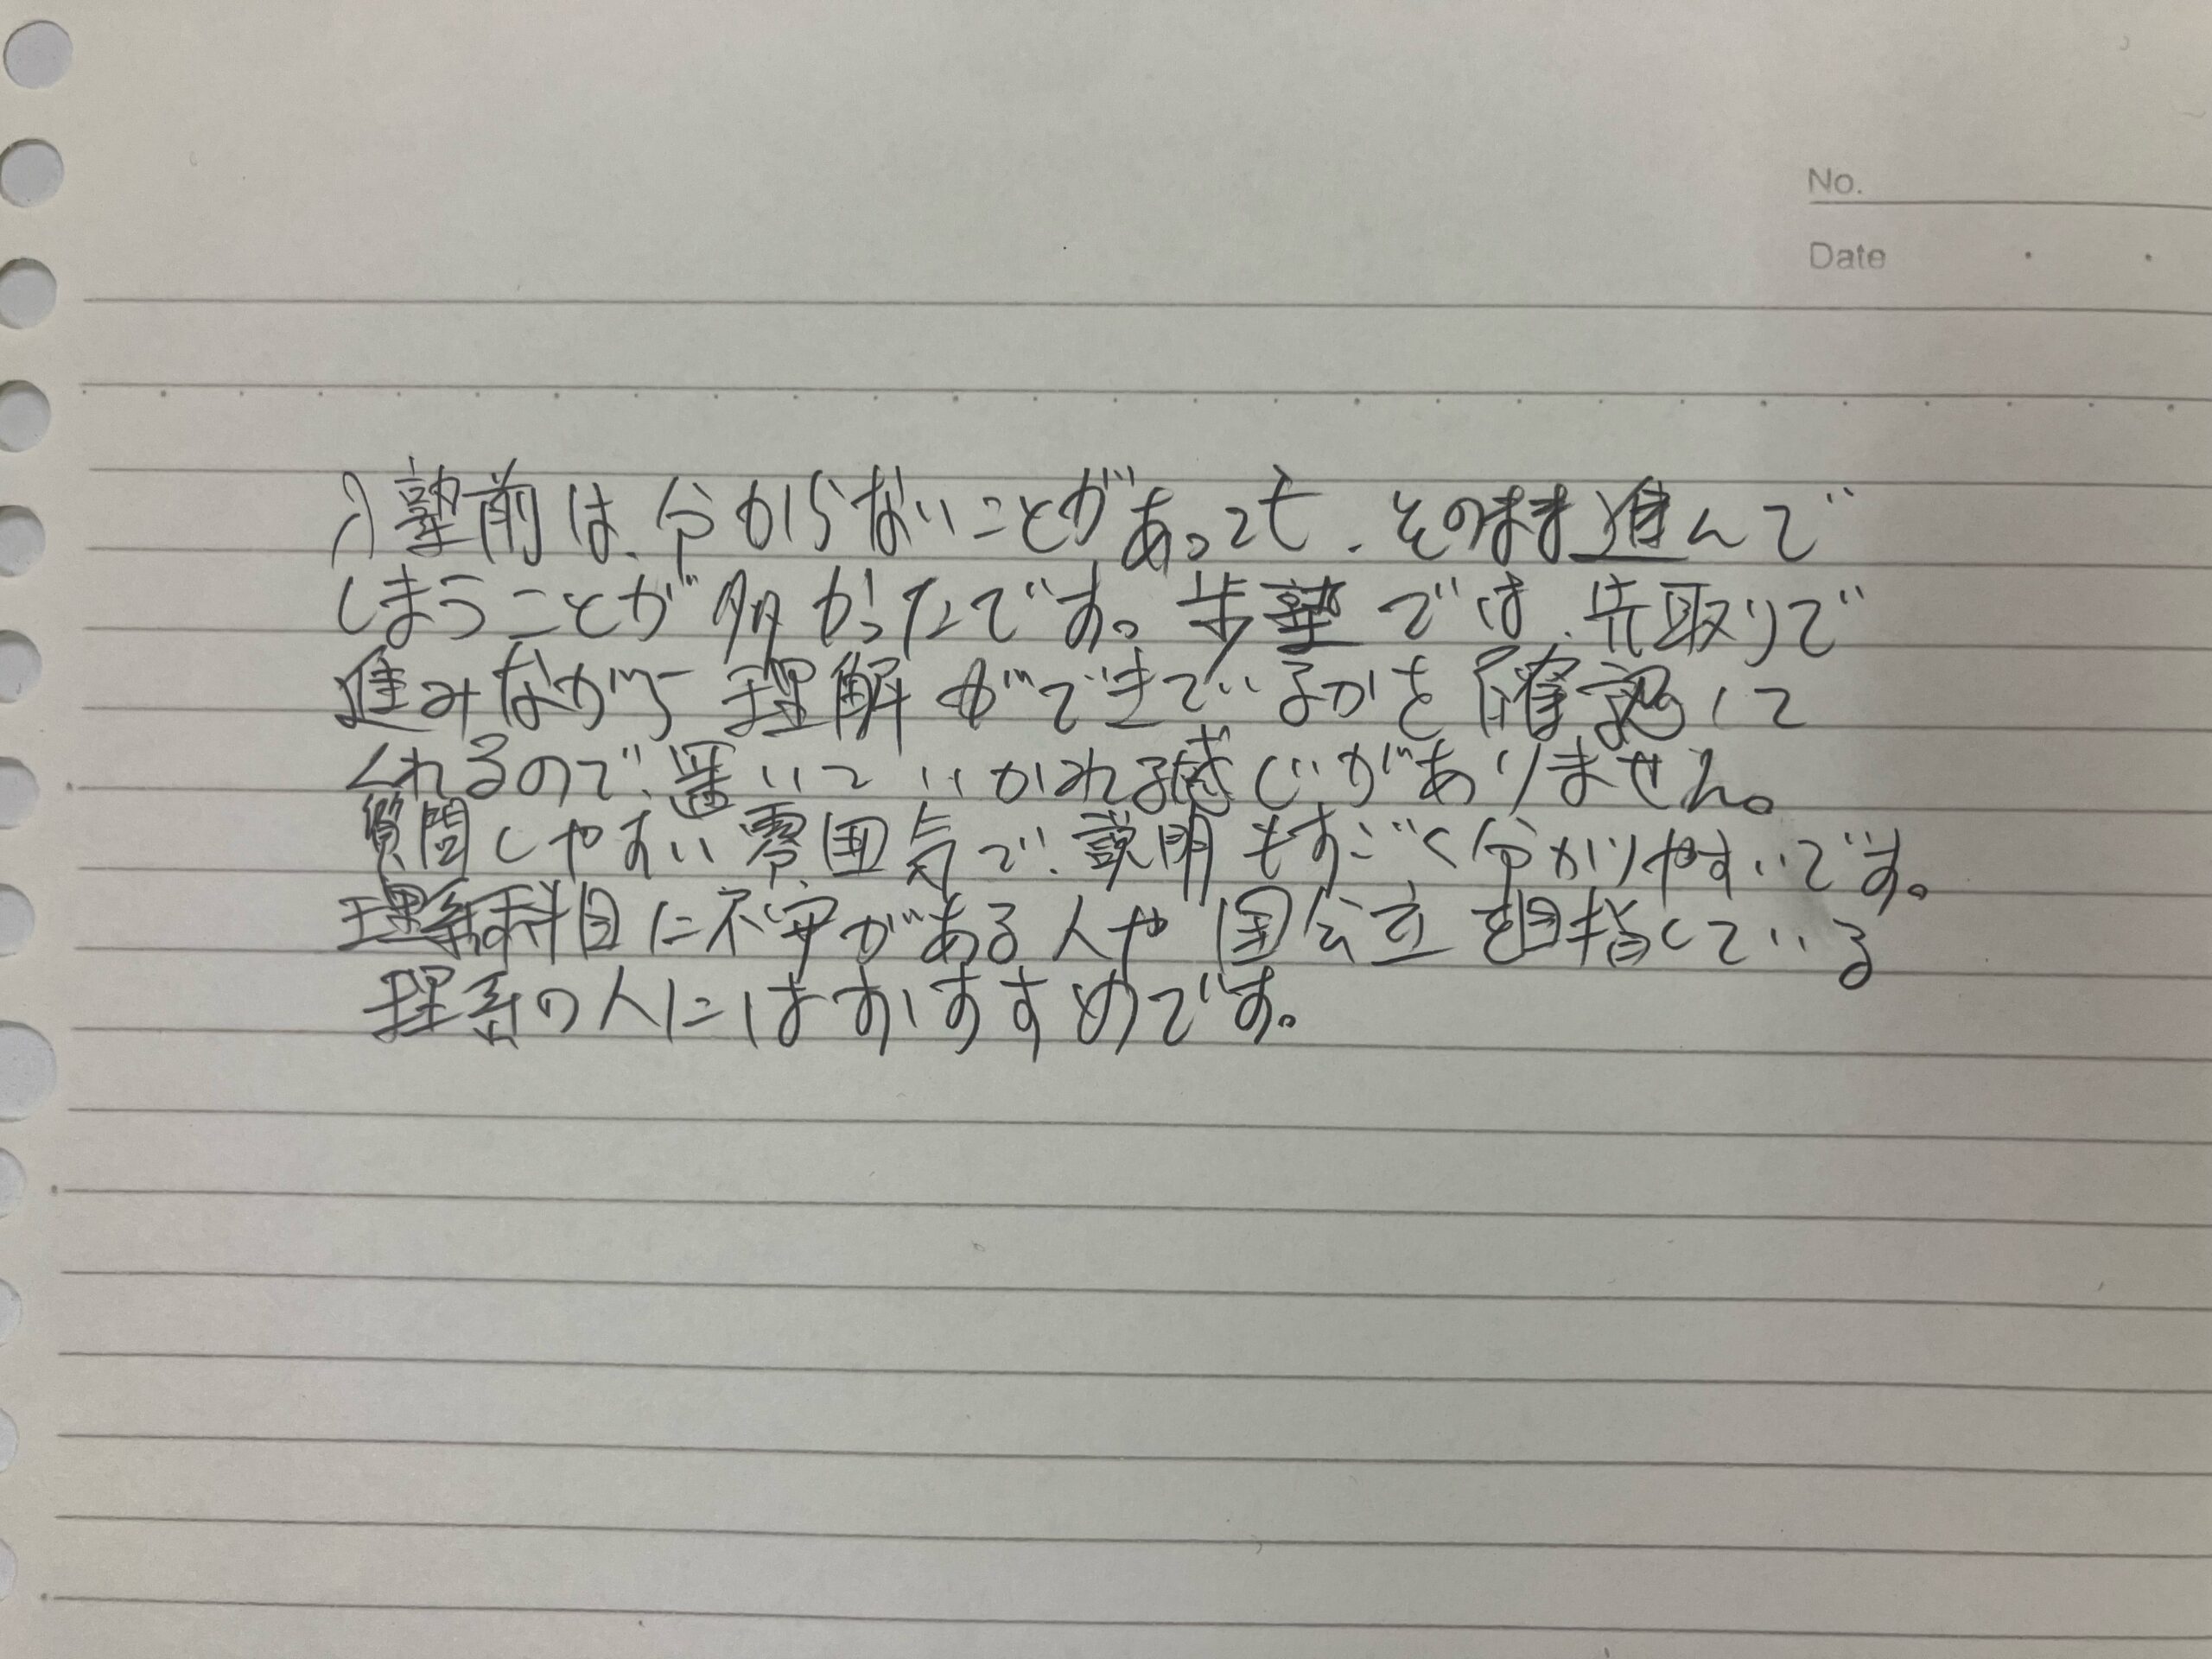 No.
Date
入塾前は、分からないことがあっても、そのまま進んで
しまうことが多かったです。歩塾では、先取りで
進みながら理解ができているかを確認して
くれるので、置いていかれる感じがありません。
質問しやすい雰囲気で、説明もすごく分かりやすいです。
理系科目に不安がある人や国公立を目指している
理系の人にはおすすめです。